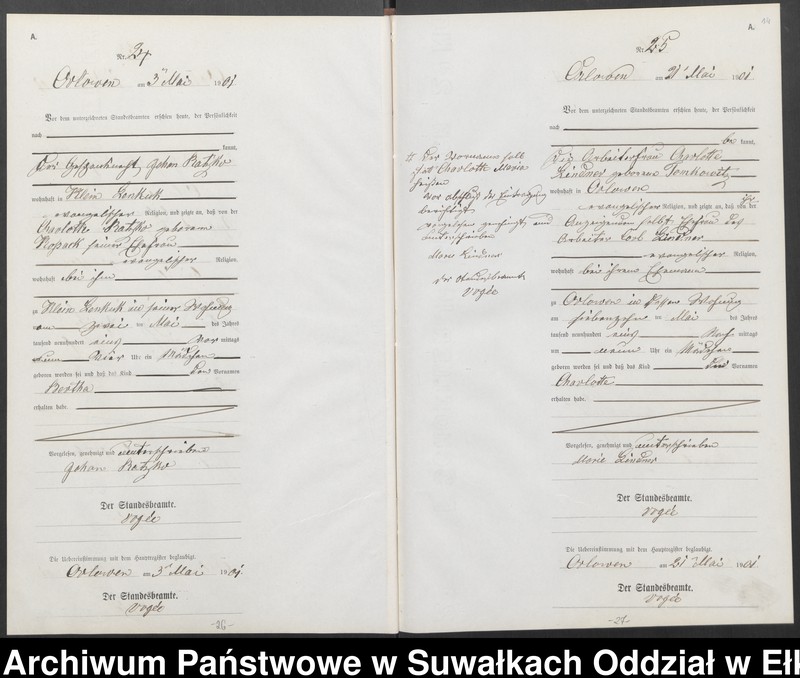 A.
Nr. 24
Orlowen am 3ten Mai 1901
Vor dem unterzeichneten Standesbeamten erschien heute, der Persönlichkeit
nach
kannt,
Johan
wohnhaft in Klein Lenkuk
evangelischer Religion, und zeigte an, daß von der
Charlotte geborene
seiner Ehefrau
evangelischer Religion,
wohnhaft bei ihm
zu Klein Lenkuk in seiner Wohnung
am zwei ten Mai des Jahres
tausend neunhundert eins Vor mittags
um Vier Uhr ein Mädchen
geboren worden sei und daß das Kind den Vornamen
Bertha
erhalten habe.
Vorgelesen, genehmigt und unterschrieben
Johan
Der Standesbeamte.
Vogée
Die Uebereinstimmung mit dem Hauptregister beglaubigt.
Orlowen am 3ten Mai 1901
Der Standesbeamte.
Vogée
-26-
14
A.
Nr. 25
Orlowen am 21ten Mai 1901
Vor dem unterzeichneten Standesbeamten erschien heute, der Persönlichkeit
nach
be kannt,
die Arbeiterfrau Charlotte
Lindner geborene
wohnhaft in Orlowen
evangelischer Religion, und zeigte an, daß von der
Anzeigenden selbst Ehefrau des
Arbeiter Carl Lindner
evangelischer Religion,
wohnhaft bei ihrem Ehemann
zu Orlowen in dessen Wohnung
am siebenzehn ten Mai des Jahres
tausend neunhundert eins Nach mittags
um neun Uhr ein Mädchen
geboren worden sei und daß das Kind den Vornamen
Charlotte
erhalten habe.
Vorgelesen, genehmigt und unterschrieben
Marie Lindner
Der Standesbeamte.
Vogée
Die Uebereinstimmung mit dem Hauptregister beglaubigt.
Orlowen am 21ten Mai 1901
Der Standesbeamte.
Vogée
-27-
Der Vorname soll
statt Charlotte Marie
heißen
Vor Abschluß der Eintragung
berichtigt
vorgelesen genehmigt und
unterschrieben
Marie Lindner
Der Standesbeamte
Vogée
Archiwum Państwowe w Suwałkach Oddział w Ełk